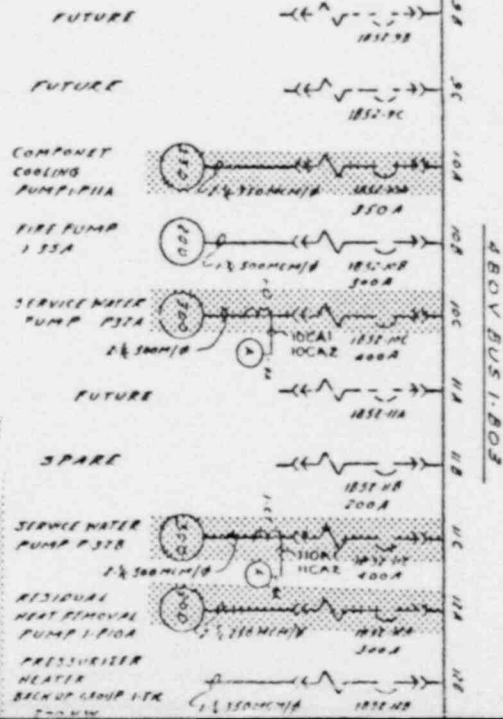 FUTURE
1B52-9B
9B
FUTURE
1B52-9C
9C
COMPONET
COOLING
PUMP 1-P11A
250
350MCM/φ
350A
10A
FIRE PUMP
P35A
200
500MCM/φ
1B52-10B
300A
10B
SERVICE WATER
PUMP P32A
300
10CA1
10CA2
A
1B52-10C
400A
10C
FUTURE
1B52-11A
11A
SPARE
1B52-11B
200A
11B
SERVICE WATER
PUMP P32B
300
500MCM/φ
11CA1
11CA2
400A
11C
RESIDUAL
HEAT REMOVAL
PUMP 1-P10A
200
250MCM/φ
1B52-12A
300A
12A
PRESSURIZER
HEATER
BACKUP GROUP
350MCM/φ
1B52-12B
12B
480V BUS 1-B03